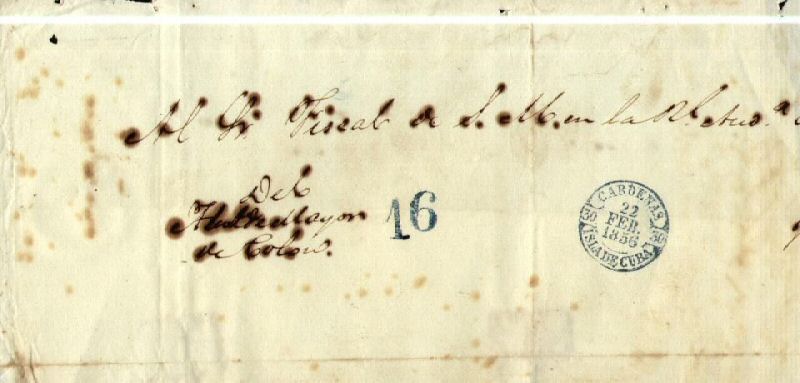 Al Sr Fiscal de S. M. en la Rl. Aud.a
Del
Alcalde Mayor
de Colon.
16
CARDENAS
22
FEB.
1856
ISLA DE CUBA
30 30